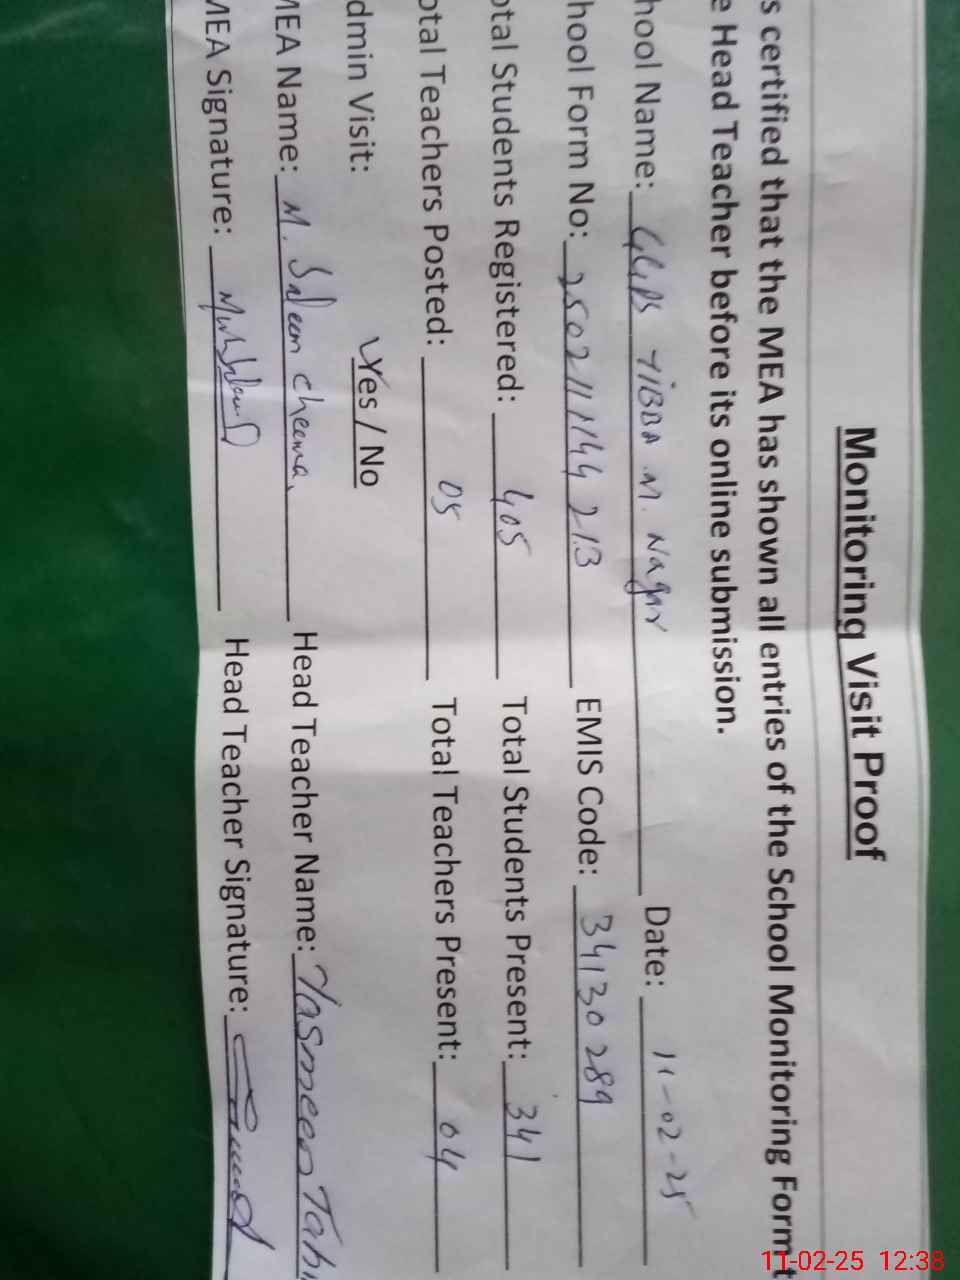 Monitoring Visit Proof
s certified that the MEA has shown all entries of the School Monitoring Form t
e Head Teacher before its online submission.
hool Name: GGPS TIBBA M. Nagar Date: 11-02-25
hool Form No: 250211144213 EMIS Code: 34130289
otal Students Registered: 405 Total Students Present: 341
otal Teachers Posted: 05 Total Teachers Present: 04
dmin Visit: Yes / No
MEA Name: M. Saleem Cheema, Head Teacher Name: Yasmeen Tahi
MEA Signature: Head Teacher Signature:
11-02-25 12:38